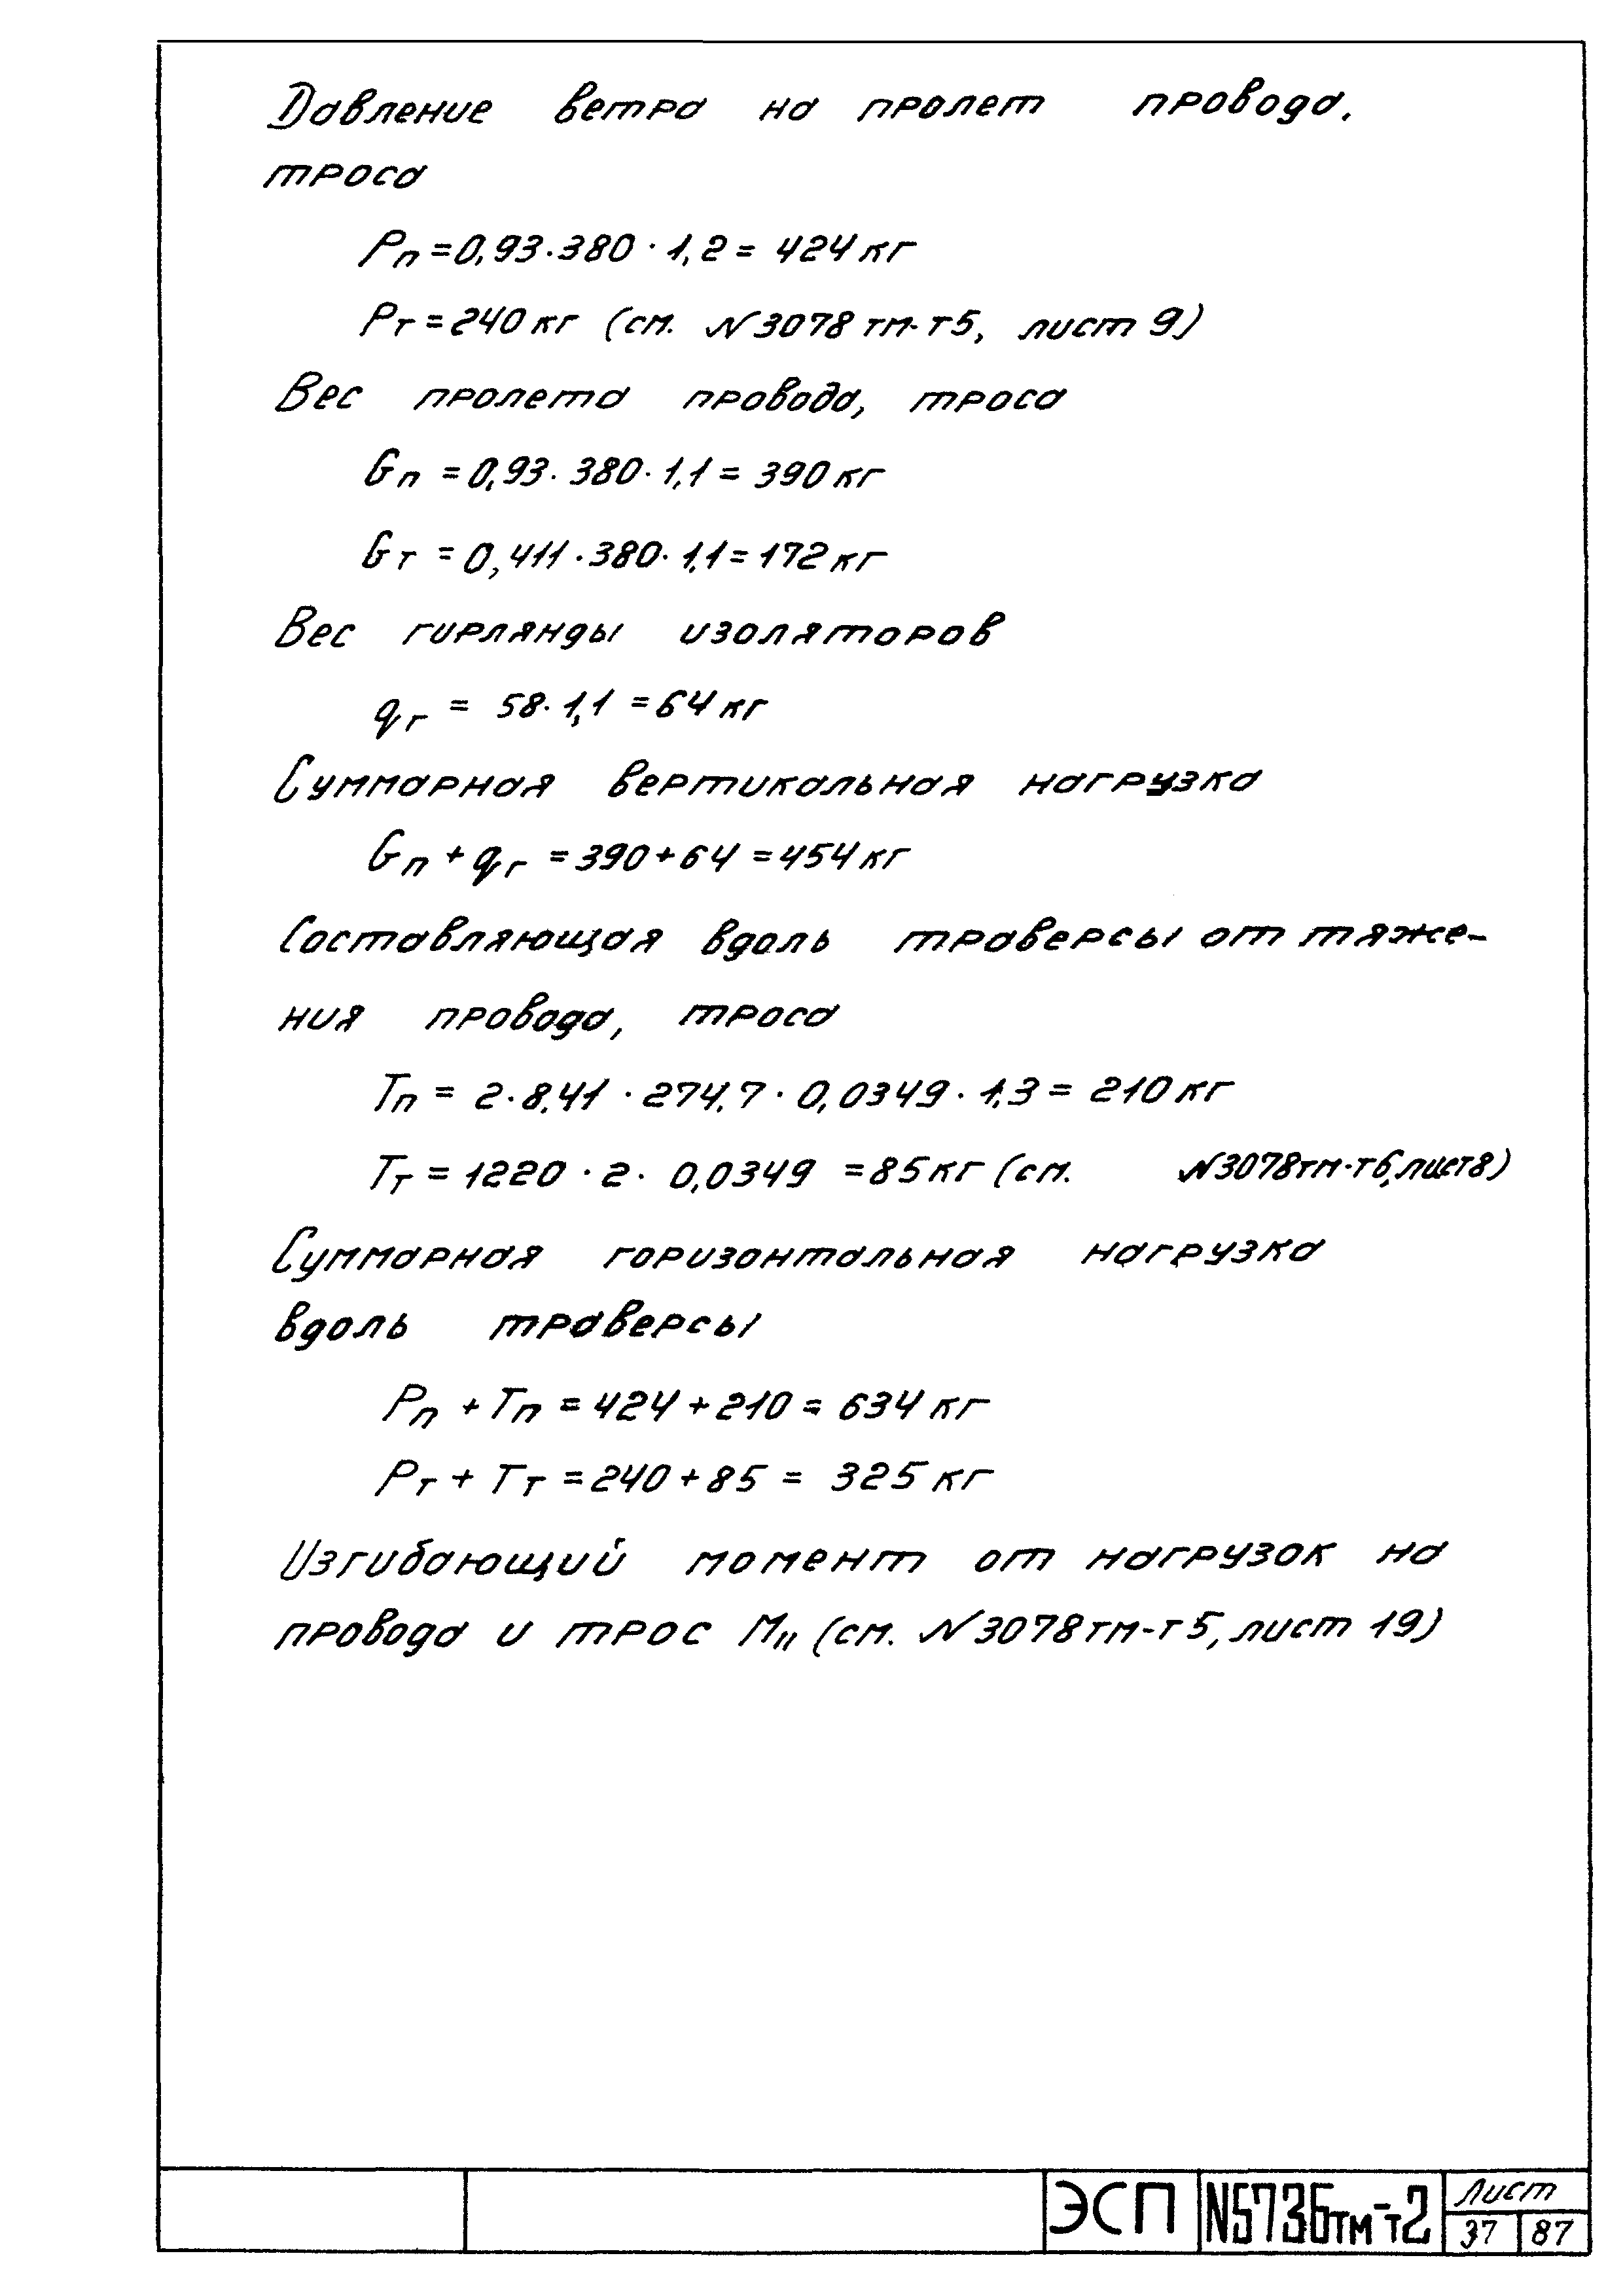 Давление ветра на пролет провода.
троса
Pп = 0,93·380·1,2 = 424 кг
Pт = 240 кг (см. N 3078 тм-т5, лист 9)
Вес пролета провода, троса
Gп = 0,93·380·1,1 = 390 кг
Gт = 0,411·380·1,1 = 172 кг
Вес гирлянды изоляторов
qг = 58·1,1 = 64 кг
Суммарная вертикальная нагрузка
Gп + qг = 390 + 64 = 454 кг
Составляющая вдоль траверсы от тяже-
ния провода, троса
Tп = 2·8,41·274,7·0,0349·1,3 = 210 кг
Tт = 1220·2·0,0349 = 85 кг (см. N 3078тм-т6, лист 8)
Суммарная горизонтальная нагрузка
вдоль траверсы
Pп + Tп = 424 + 210 = 634 кг
Pт + Tт = 240 + 85 = 325 кг
Изгибающий момент от нагрузок на
провода и трос M" (см. N 3078тм-т5, лист 19)
ЭСП N5736тм-т2 Лист
37 87